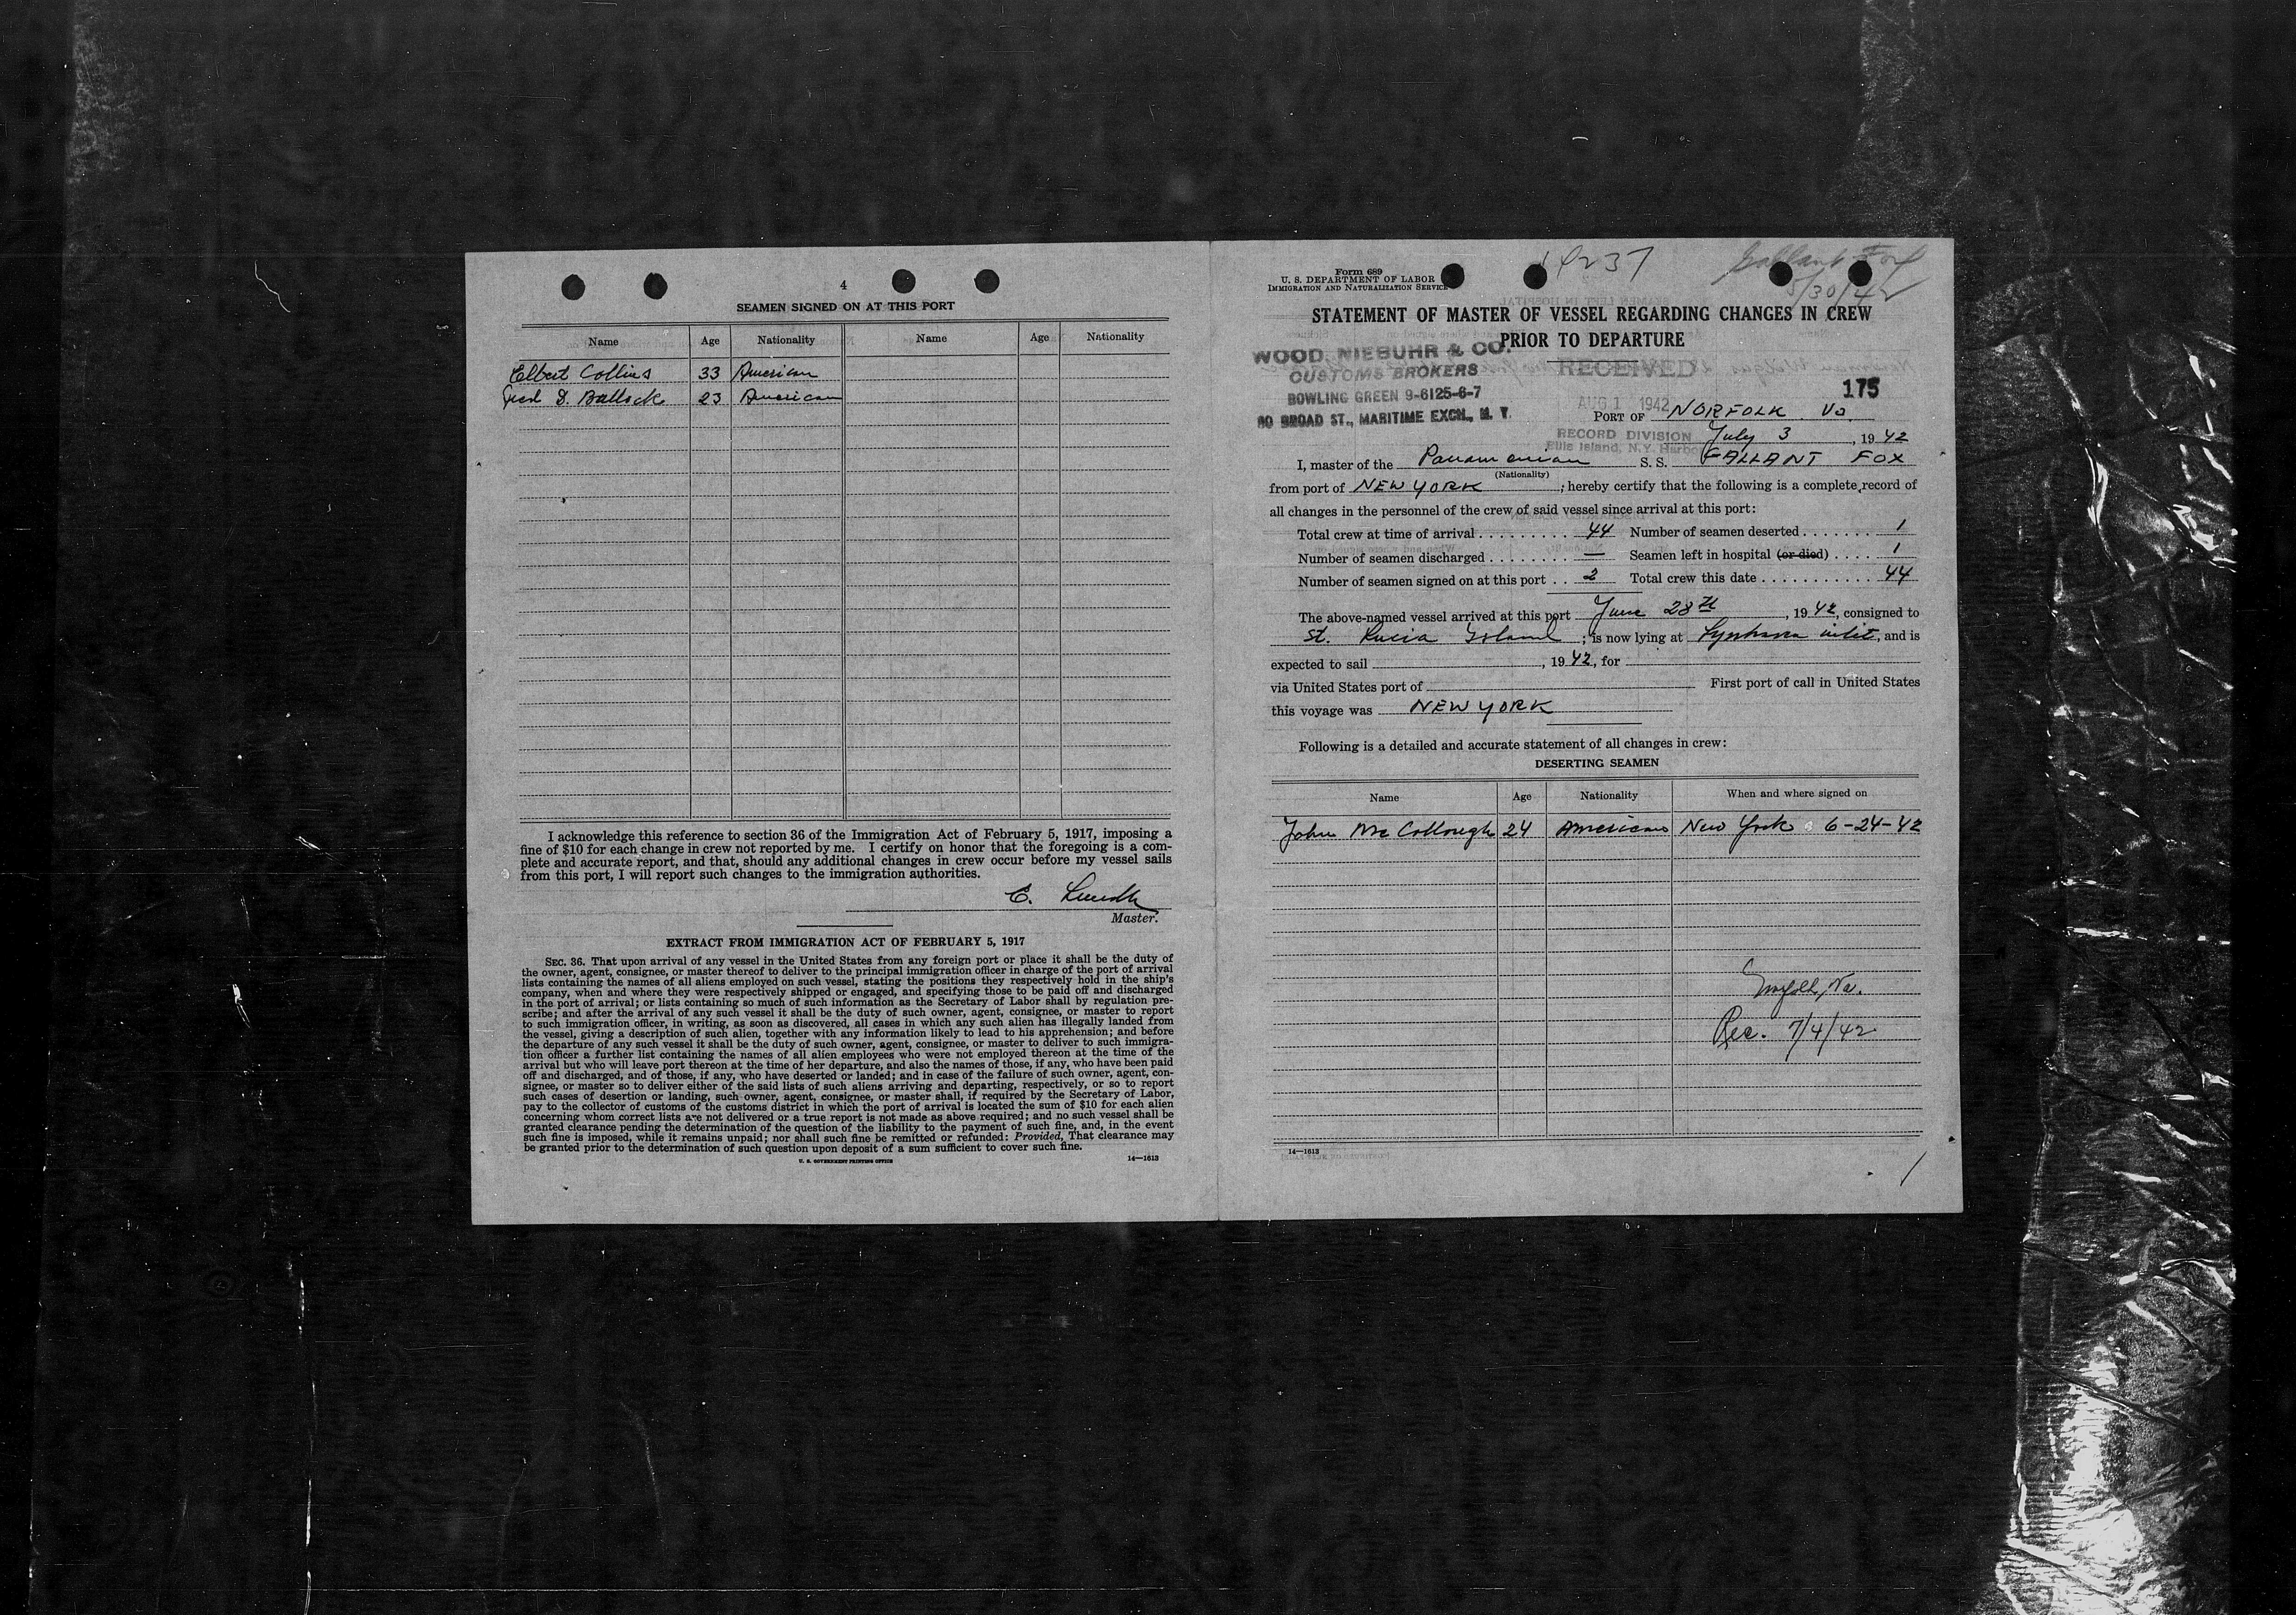 4
SEAMEN SIGNED ON AT THIS PORT
Name Age Nationality Name Age Nationality
Elbert Collins 33 American
D. Bullock 23 American
I acknowledge this reference to section 36 of the Immigration Act of February 5, 1917, imposing a
fine of $10 for each change in crew not reported by me. I certify on honor that the foregoing is a com-
plete and accurate report, and that, should any additional changes in crew occur before my vessel sails
from this port, I will report such changes to the immigration authorities.
C.
Master.
EXTRACT FROM IMMIGRATION ACT OF FEBRUARY 5, 1917
SEC. 36. That upon arrival of any vessel in the United States from any foreign port or place it shall be the duty of
the owner, agent, consignee, or master thereof to deliver to the principal immigration officer in charge of the port of arrival
lists containing the names of all aliens employed on such vessel, stating the positions they respectively hold in the ship's
company, when and where they were respectively shipped or engaged, and specifying those to be paid off and discharged
in the port of arrival; or lists containing so much of such information as the Secretary of Labor shall by regulation pre-
scribe; and after the arrival of any such vessel it shall be the duty of such owner, agent, consignee, or master to report
to such immigration officer, in writing, as soon as discovered, all cases in which any such alien has illegally landed from
the vessel, giving a description of such alien, together with any information likely to lead to his apprehension; and before
the departure of any such vessel it shall be the duty of such owner, agent, consignee, or master to deliver to such immigra-
tion officer a further list containing the names of all alien employees who were not employed thereon at the time of the
arrival but who will leave port thereon at the time of her departure, and also the names of those, if any, who have been paid
off and discharged, and of those, if any, who have deserted or landed; and in case of the failure of such owner, agent, con-
signee, or master so to deliver either of the said lists of such aliens arriving and departing, respectively, or so to report
such cases of desertion or landing, such owner, agent, consignee, or master shall, if required by the Secretary of Labor,
pay to the collector of customs of the customs district in which the port of arrival is located the sum of $10 for each alien
concerning whom correct lists are not delivered or a true report is not made as above required; and no such vessel shall be
granted clearance pending the determination of the question of the liability to the payment of such fine, and, in the event
such fine is imposed, while it remains unpaid; nor shall such fine be remitted or refunded: Provided, That clearance may
be granted prior to the determination of such question upon deposit of a sum sufficient to cover such fine.
U. S. GOVERNMENT PRINTING OFFICE 14—1613
Form 689
U. S. DEPARTMENT OF LABOR
IMMIGRATION AND NATURALIZATION SERVICE
Gallant Fox
5/30/42
STATEMENT OF MASTER OF VESSEL REGARDING CHANGES IN CREW
PRIOR TO DEPARTURE
WOOD, NIEBUHR & CO.
CUSTOMS BROKERS
BOWLING GREEN 9-6125-6-7
80 BROAD ST., MARITIME EXCH., N. Y.
RECEIVED
AUG 1 1942
RECORD DIVISION
Ellis Island, N.Y. Harbor
175
PORT OF NORFOLK Va.
July 3, 1942
I, master of the Panamanian S. S. GALLANT FOX
(Nationality)
from port of NEW YORK; hereby certify that the following is a complete record of
all changes in the personnel of the crew of said vessel since arrival at this port:
Total crew at time of arrival 44 Number of seamen deserted 1
Number of seamen discharged — Seamen left in hospital (or died) 1
Number of seamen signed on at this port 2 Total crew this date 44
The above-named vessel arrived at this port June 28th, 1942, consigned to
St. Lucia Island; is now lying at Lynhaven inlet, and is
expected to sail , 1942, for
via United States port of First port of call in United States
this voyage was NEW YORK
Following is a detailed and accurate statement of all changes in crew:
DESERTING SEAMEN
Name Age Nationality When and where signed on
John McCollough 24 American New York 6-24-42
Norfolk, Va.
Rec. 7/4/42
14—1613